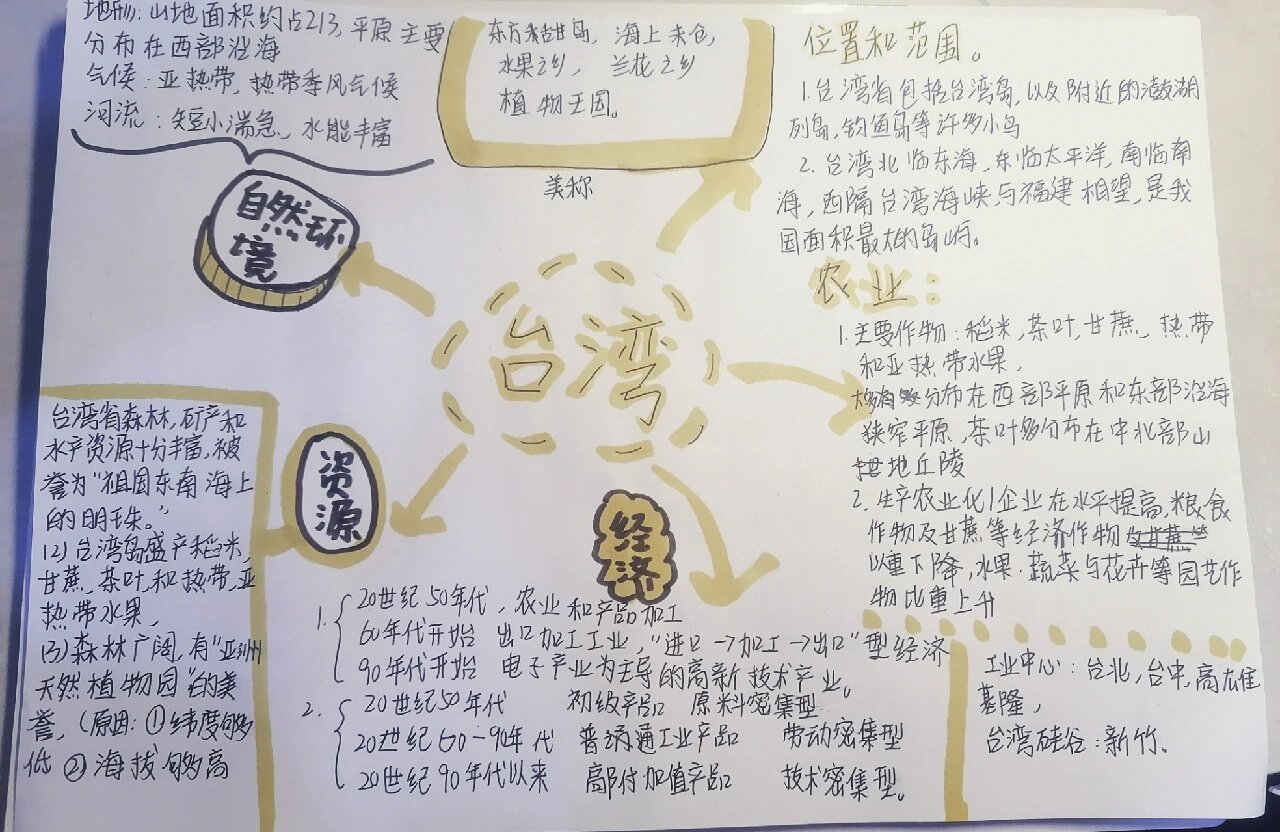 地形:山地面积约占213,平原主要
分布在西部沿海
气候:亚热带,热带季风气候
河流:短小湍急、水能丰富
自然环
境
东方甜岛,海上米仓,
水果之乡, 兰花之乡
植物王国。
美称
位置和范围。
1.台湾省包括台湾岛,以及附近的澎湖
列岛,钓鱼岛等许多小岛
2. 台湾北临东海,东临太平洋,南临南
海,西隔台湾海峡,与福建相望,是我
国面积最大的岛屿。
台湾
农业:
1.主要作物:稻米,茶叶,甘蔗、热带
和亚热带水果,
分布在西部平原和东部沿海
狭窄平原,茶叶多分布在中北部山
地丘陵
2. 生产农业化1企业在水平提高,粮食
作物及甘蔗等经济作物
以重下降,水果·蔬菜与花卉等园艺作
物比重上升
资源
台湾省森林,矿产和
水产资源十分丰富,被
誉为"祖国东南海上
的明珠。"
(2)台湾岛盛产稻米,
甘蔗、茶叶,和热带,亚
热带水果,
(3)森林广阔,有"亚洲
天然植物园"的美
誉,(原因:①纬度够
低 ②海拔够高
经济
1. 20世纪50年代,农业和产品加工
60年代开始 出口加工工业,"进口→加工→出口"型经济
90年代开始 电子产业为主导的高新技术产业。
2. 20世纪50年代 初级产品 原料密集型
20世纪60-90年代 普通工业产品 劳动密集型
20世纪90年代以来 高附加值产品 技术密集型。
工业中心:台北,台中,高雄
基隆,
台湾硅谷:新竹。